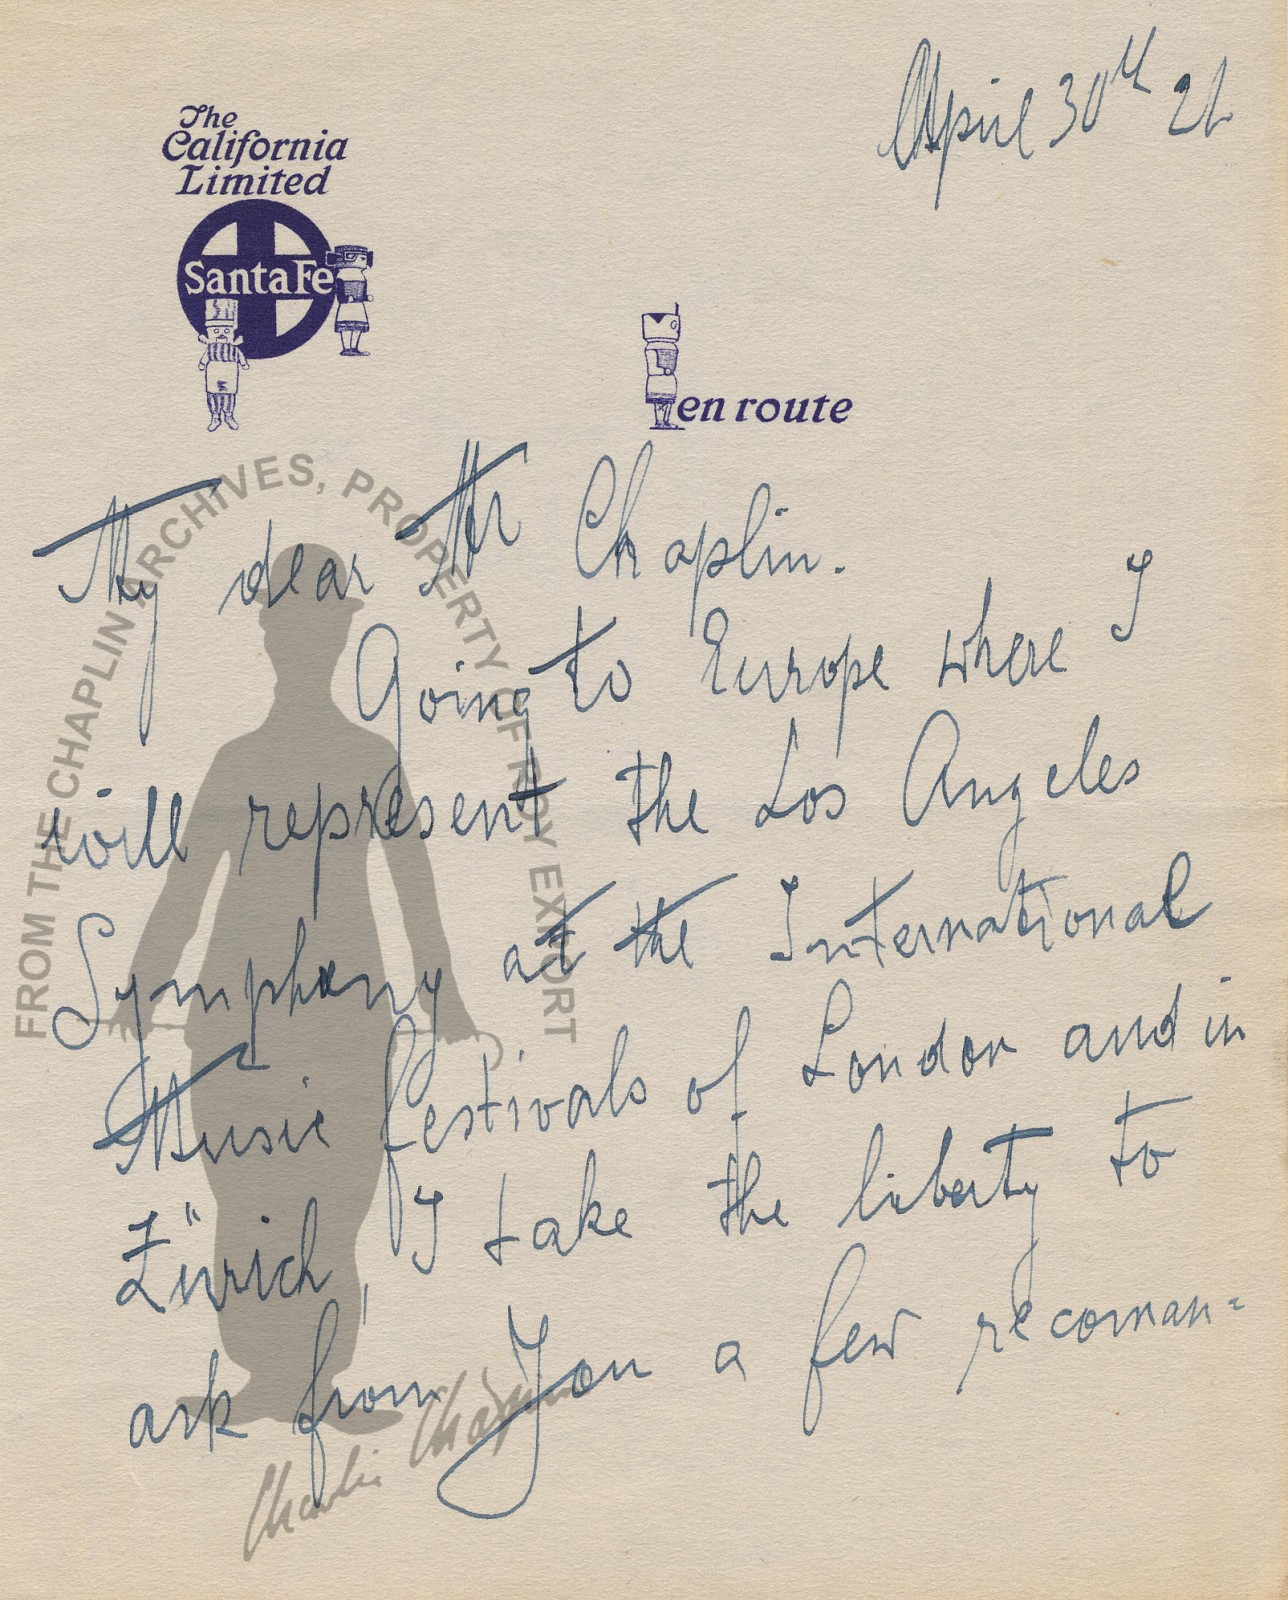 April 30th 21
The
California
Limited
Santa Fe
en route
My dear Mr Chaplin.
Going to Europe where I
will represent the Los Angeles
Symphony at the International
Music festivals of London and in
Zürich, I take the liberty to
ask from You a few recoman=
FROM THE CHAPLIN ARCHIVES, PROPERTY OF ROY EXPORT
Charlie Chaplin